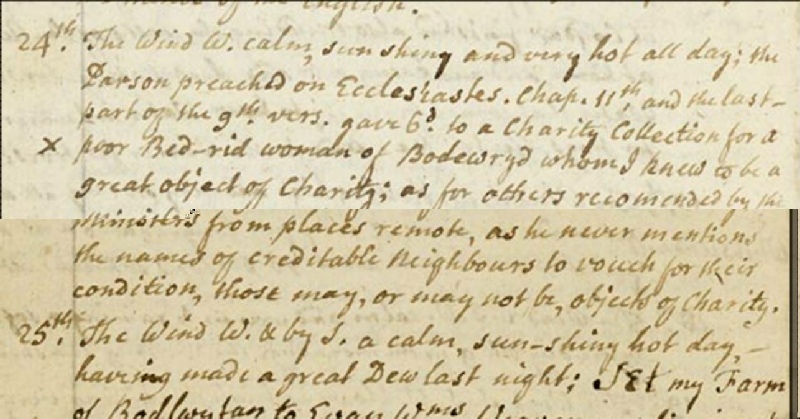 of the English.
24th. The Wind W. calm, sun shiny and very hot all day; the
Parson preached on Ecclesiastes. Chap. 11th. and the last
part of the 9th. vers. gave 6d. to a Charity Collection for a
x poor Bed-rid woman of Bodewryd whom I knew to be a
great object of Charity; as for others recomended by the
Ministers from places remote, as he never mentions
the names of creditable Neighbours to vouch for their
condition, those may, or may not be, objects of Charity.
25th. The Wind W. & by S. a calm, sun-shiny hot day,-
having made a great Dew last night; Set my Farm
of Bodlwytan to Evan Wms